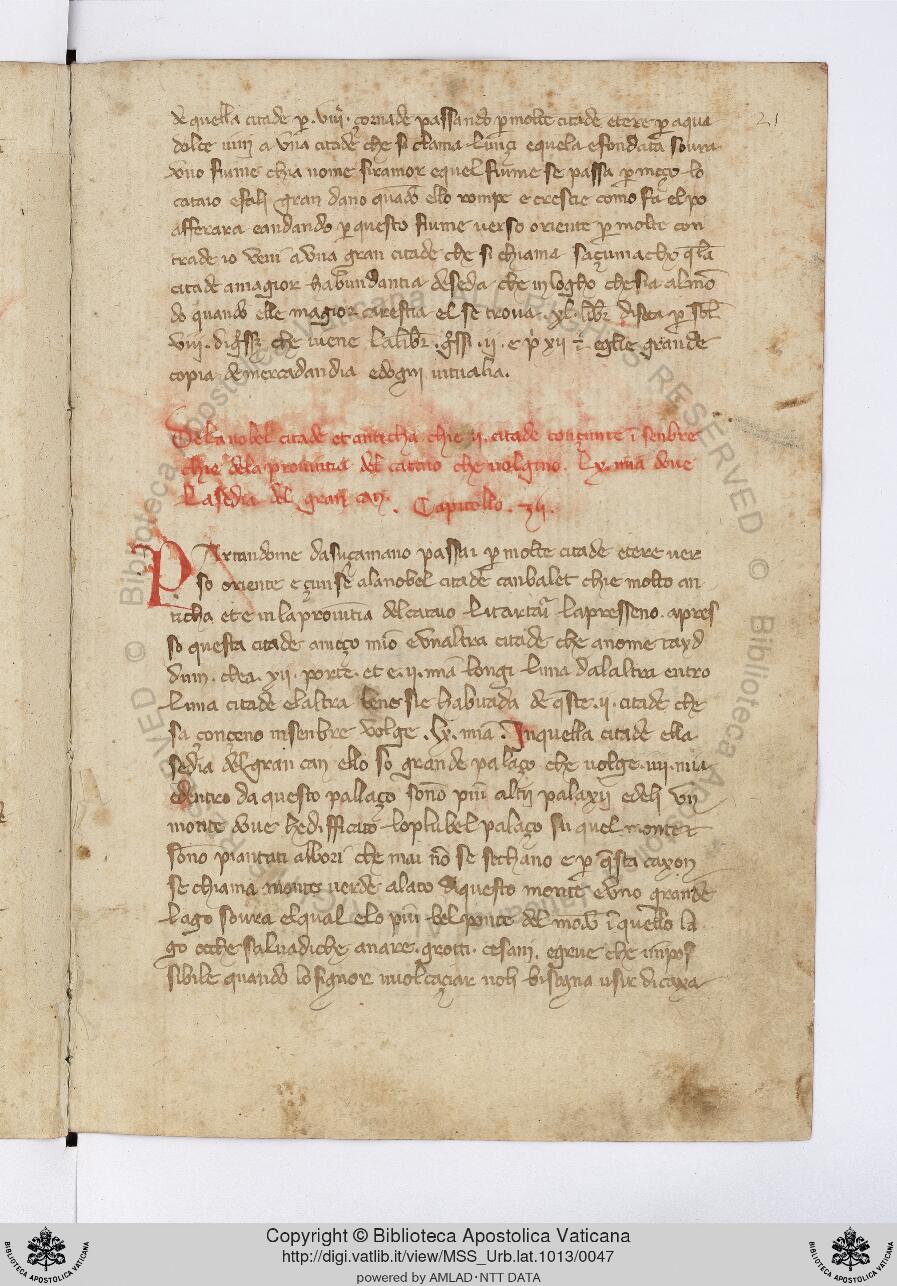 21
de quella citade p. viii. çornade passando p molte citade e tere p aqua
dolce vini a vna citade che si clama lunçi equela e fondata soura
vno fiume chia nome siramor equel fiume se passa p meço lo
cataio e fali gran dano quādo ello rompe e crescie como fa el po
afferara e andando p questo fiume verso oriente p molte con
trade io veni a vna gran citade che si chiama saçumacho q̄la
citade a magior habundantia de seda che in logho che sia al mō
do quando elle magior carestia el se trova .xl. libr di seta p
viii. di g̊ssi che viene la libr. g̊ssi .ii. e p xii e glie grande
copia de mercadandia e dogni vitualia.
De la nobel citade et anticha chie ii. citade conçunte ī senbre
chie dela provincia del cataio che volgino. lx. mia dove
La sedia del gran can. Capitollo.
PArtandome da suçamano passai p molte citade e tere ver
so oriente e çunsē ala nobel citade canbalet chie molto an
ticha et e in la provintia del cataio li tartari la presseno. apres
so questa citade a meço mio e vnaltra citade che a nome tayd
dum. chea. xii. porte. et e. ii. mia longi luna dalaltra entro
luna citade e laltra bene sie habitada de q̄ste. ii. citade che
sa çonçeno insenbre volge. lx. mia. In quella citade ella
sedia del gran can ello so grande palaço che volge. iiii. mia
e dentro da questo pallaço sono piu altri palaxii e deli vn
monte dove hedifficato lo plu bel palaço su quel monte
sono piantati albori che mai nō se sechano e p q̄sta caxon
se chiama monte verde alato a questo monte e vno grande
lago soura el qual e lo piu bel ponte del mōdo ī quello la
go oche salvadiche anare. grotti. cesani. e grue che impos
sibile quando lo signor vuol caçiar noli bisogna usir di caxa
Copyright © Biblioteca Apostolica Vaticana
http://digi.vatlib.it/view/MSS_Urb.lat.1013/0047
powered by AMLAD • NTT DATA